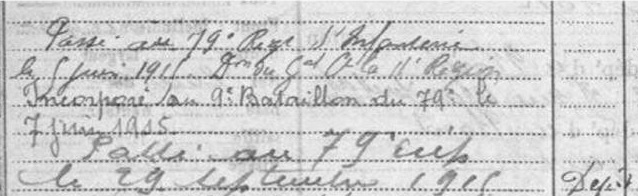 Passé au 79e Regt d'Infanterie
le 5 juin 1915. Don du Gal Ct la 11e Région
Incorporé au 9e Bataillon du 79e le
7 juin 1915.
Passé au 79e
le 29 septembre 1915 Dépôt